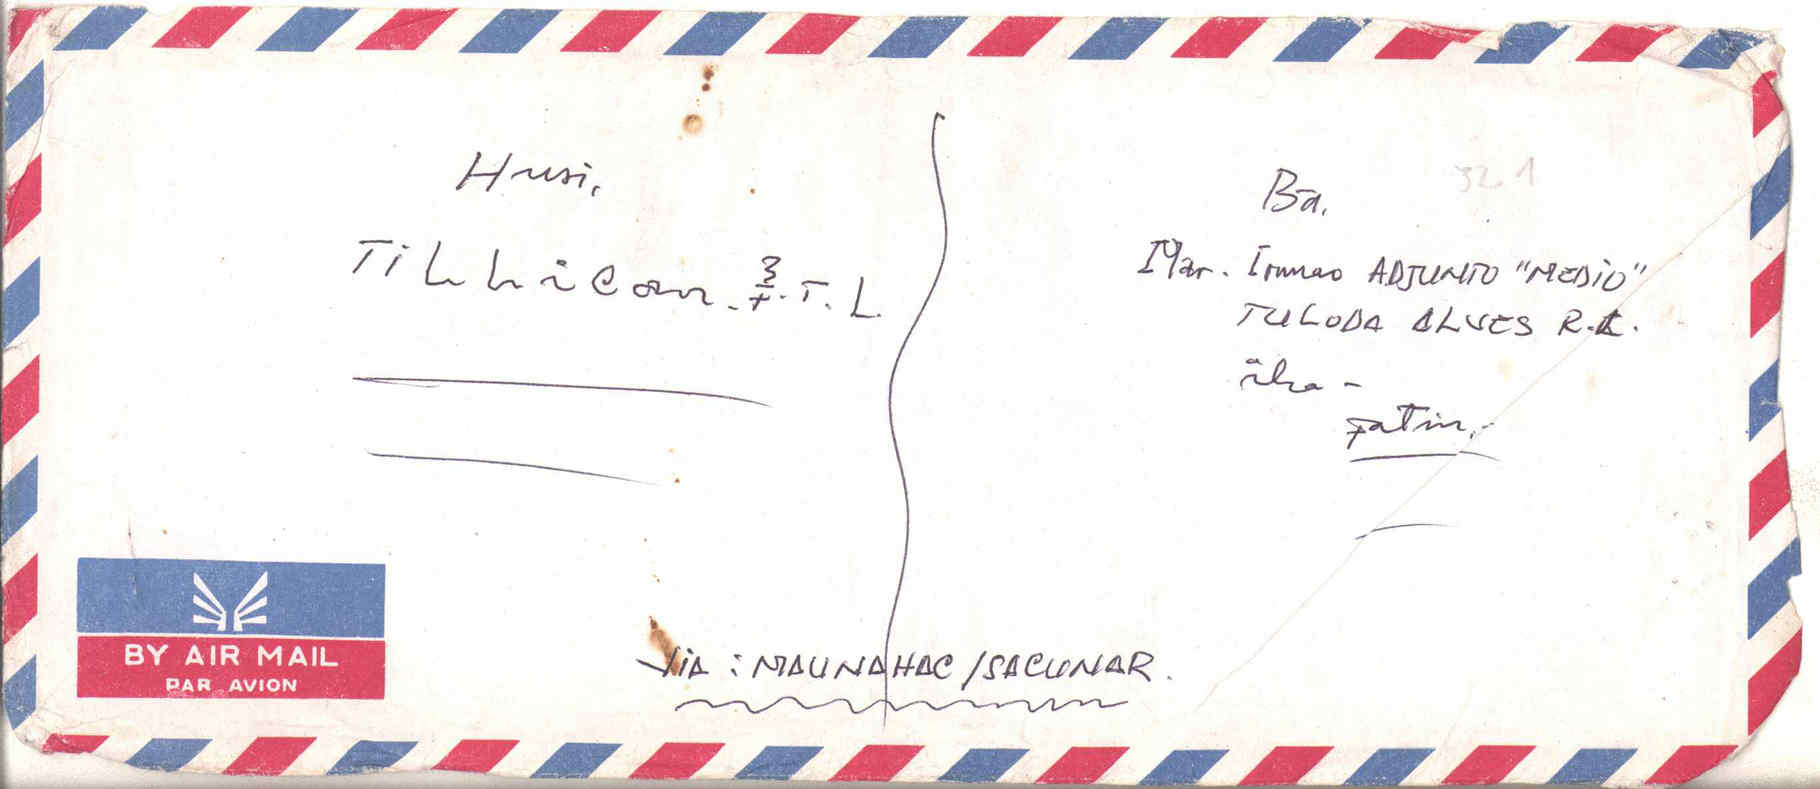 Husi,
Tilhican. F.T.L.
Ba,
Mar. Irmao ADJUNTO "MEDIO"
TULODA ALVES R.L.
iha -
Fatin,-
Via : MAUNAHAC/SACUNAR.
321
BY AIR MAIL
PAR AVION